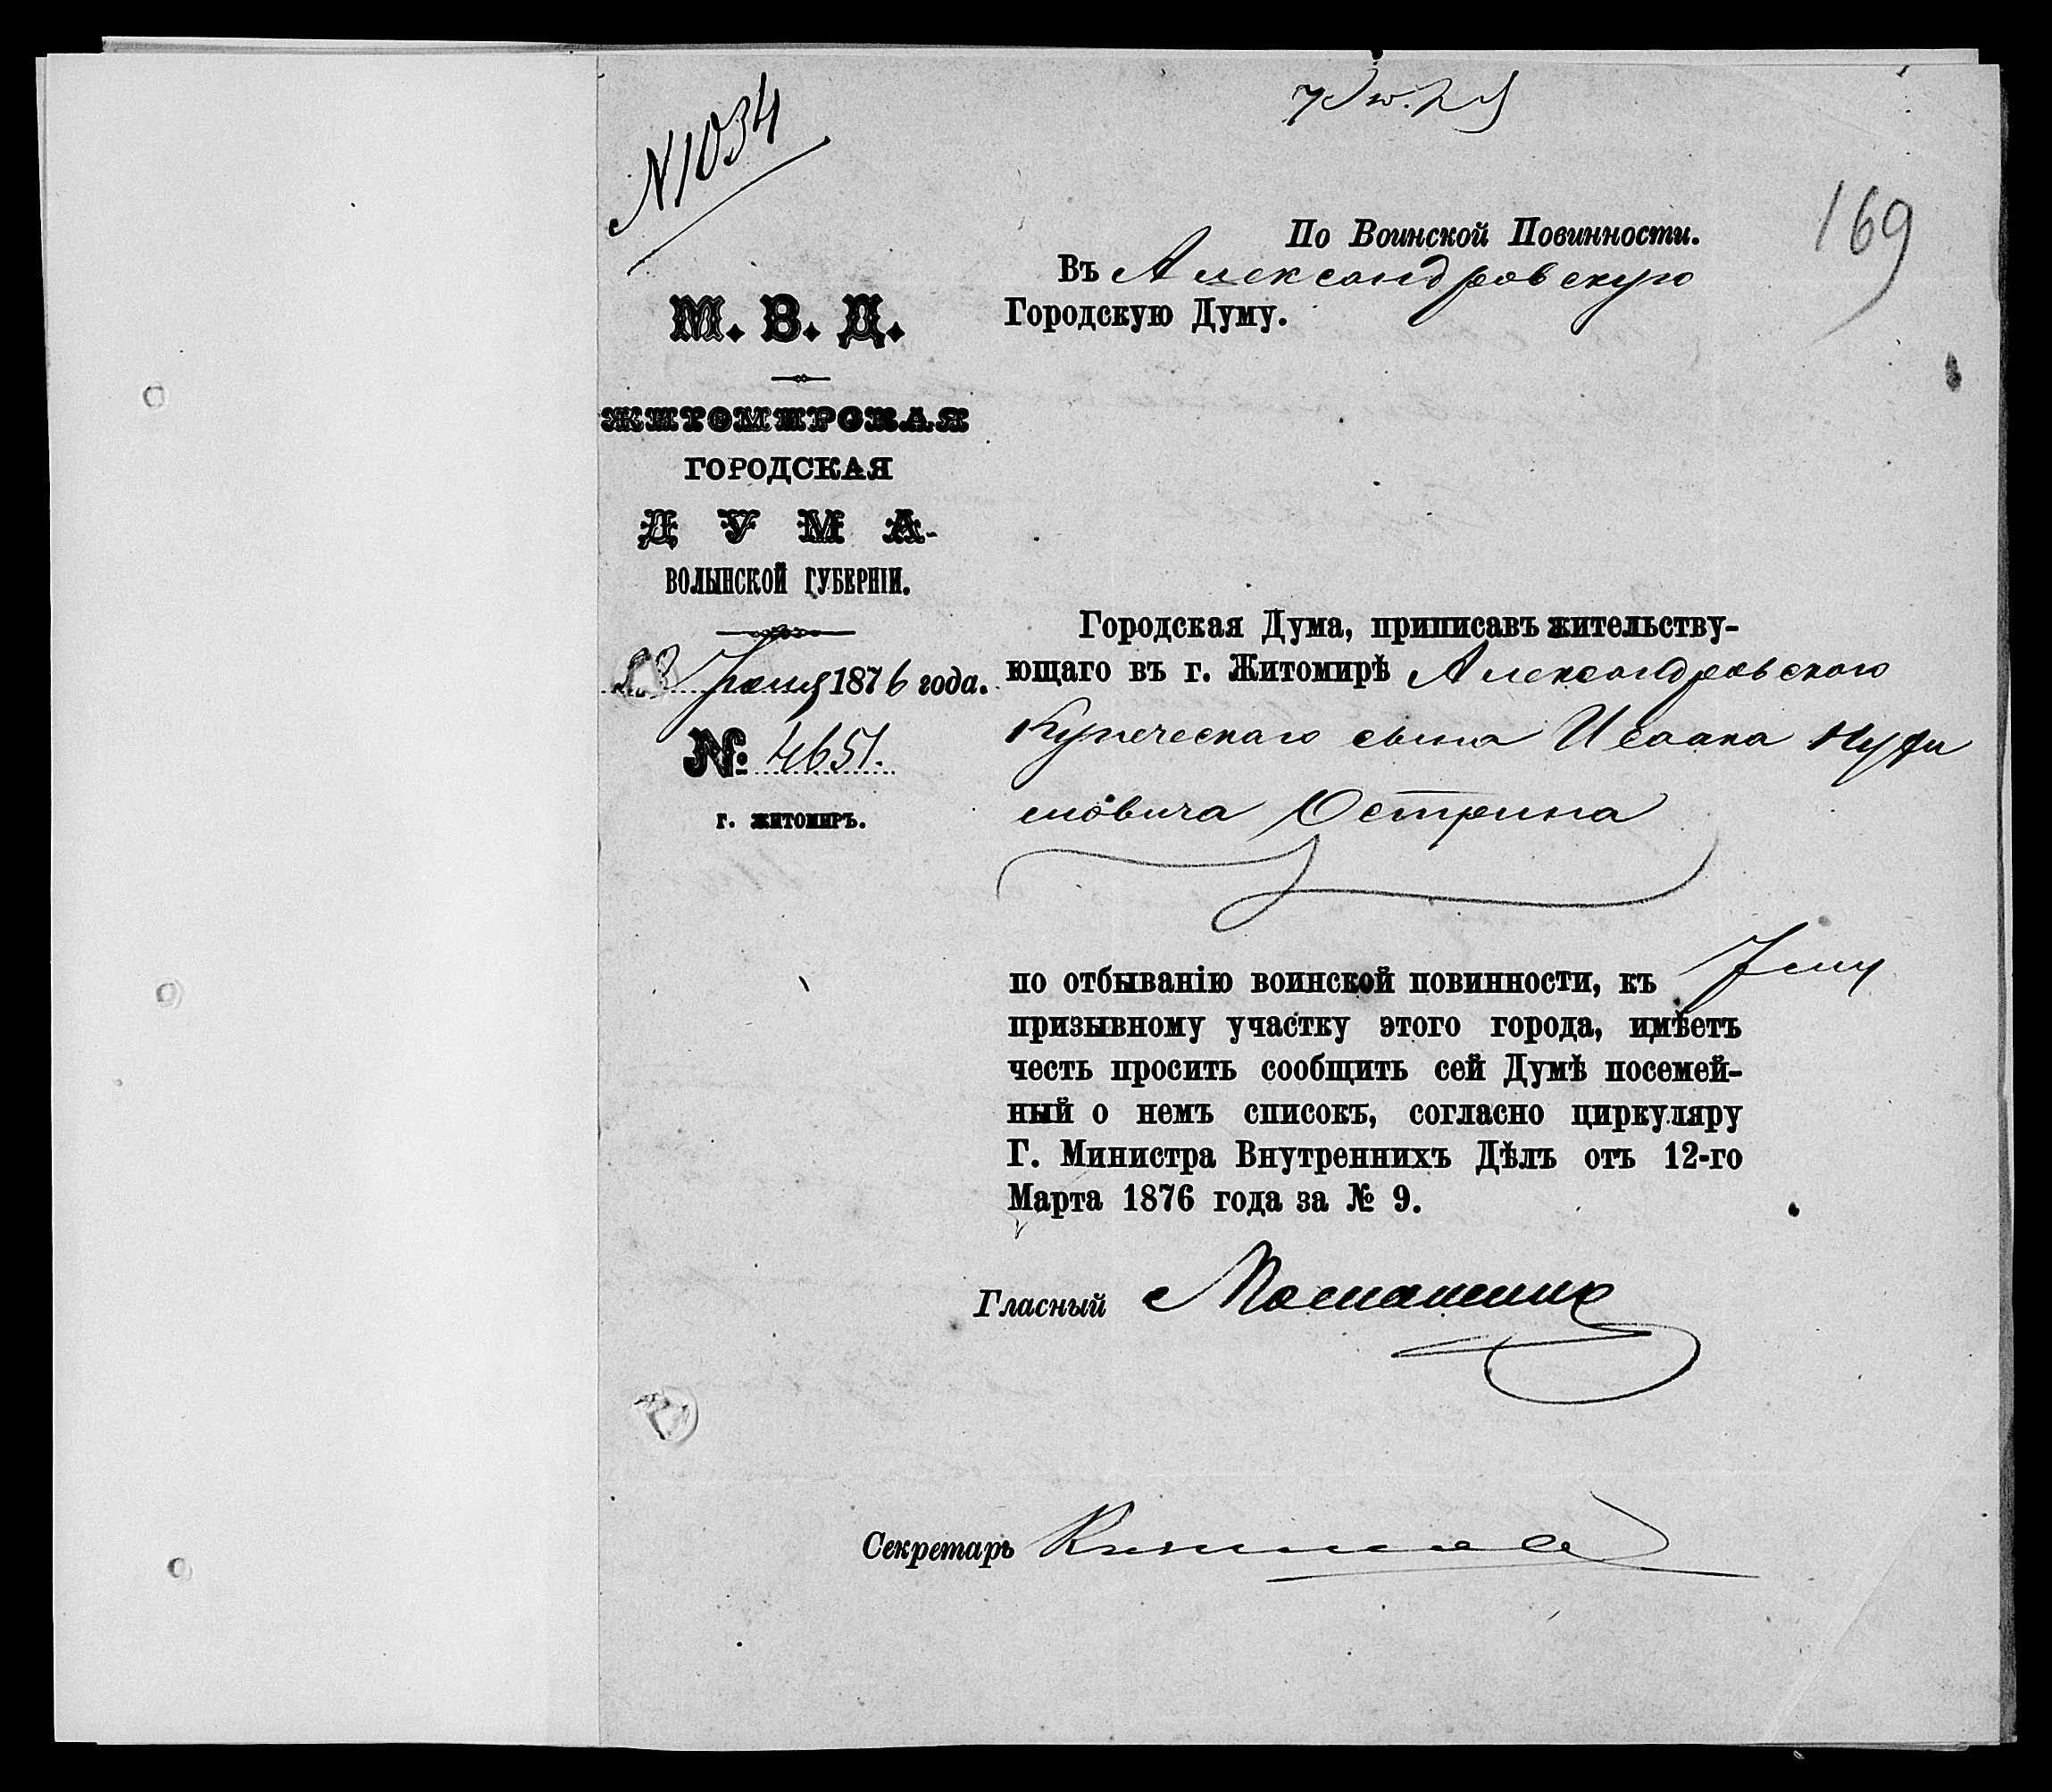 N 1034
169
По Воинской Повинности.
Въ Александровскую
Городскую Думу.
М. В. Д.
ЖИТОМИРСКАЯ
ГОРОДСКАЯ
ДУМА
ВОЛЫНСКОЙ ГУБЕРНІИ.
23 Іюня 1876 года.
№ 4651.
г. ЖИТОМИРЪ.
Городская Дума, приписавъ жительству-
ющаго въ г. Житомирѣ Александровскаго
Купеческаго сына Исаака
Острина
по отбыванію воинской повинности, къ
призывному участку этого города, имѣетъ
честь просить сообщить сей Думѣ посемей-
ный о немъ списокъ, согласно циркуляру
Г. Министра Внутреннихъ Дѣлъ отъ 12-го
Марта 1876 года за № 9.
Гласный
Секретарь